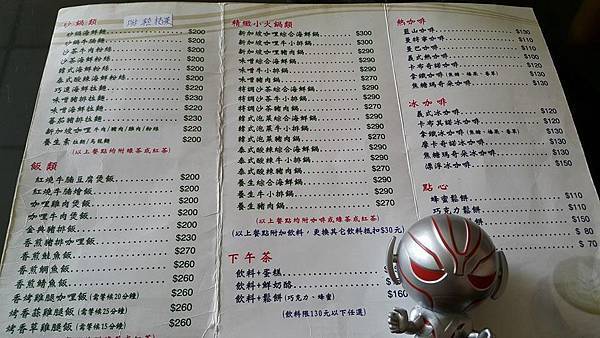 砂鍋類
附純拉茶
砂鍋海鮮麵 $200
砂鍋牛腩麵 $200
沙茶牛肉粉絲 $200
沙茶海鮮粉絲 $200
韓式海鮮粉絲 $200
泰式酸辣海鮮粉絲 $200
巧達海鮮拉麵 $220
味噌豬排拉麵 $230
味噌海鮮拉麵 $220
蕃茄豬排拉麵 $230
新加坡咖哩牛肉/豬肉/雞肉/粉絲 $220
養生素拉麵/烏龍麵 $200
(以上餐點均附綠茶或紅茶)
飯類
紅燒牛腩豆腐煲飯 $200
紅燒牛腩燴飯 $200
咖哩雞肉煲飯 $200
咖哩牛肉煲飯 $200
金典豬排飯 $200
香煎豬排咖哩飯 $230
香煎鮭魚飯 $270
香煎鯛魚飯 $260
香煎鯖魚飯 $260
香烤雞腿咖哩飯(需等候20分鐘) $260
香烤蒜雞腿飯(需等候25分鐘) $260
香烤草雞腿飯(需等候15分鐘) $260
精緻小火鍋類
新加坡咖哩綜合海鮮鍋 $300
新加坡咖哩牛小排鍋 $300
新加坡咖哩豬肉鍋 $280
味噌綜合海鮮鍋 $290
味噌牛小排鍋 $290
味噌豬肉鍋 $270
特調沙茶綜合海鮮鍋 $290
特調沙茶牛小排鍋 $290
特調沙茶豬肉鍋 $270
韓式泡菜綜合海鮮鍋 $290
韓式泡菜牛小排鍋 $290
韓式泡菜豬肉鍋 $270
泰式酸辣綜合海鮮鍋 $290
泰式酸辣牛小排鍋 $290
泰式酸辣豬肉鍋 $270
養生綜合海鮮鍋 $290
養生牛小排鍋 $290
養生豬肉鍋 $270
(以上餐點均附咖啡或綠茶或紅茶)
(以上餐點附加飲料，更換其它飲料抵扣$30元)
下午茶
飲料+蛋糕
飲料+鮮奶酪
飲料+鬆餅(巧克力、蜂蜜) $160
(飲料限130元以下任選)
熱咖啡
藍山咖啡 $130
曼特寧咖啡 $130
曼巴咖啡 $130
義式熱咖啡 $100
卡布奇諾咖啡 $120
拿鐵咖啡(焦糖、榛果、香草) $130
焦糖瑪奇朵咖啡 $130
冰咖啡
義式冰咖啡 $120
卡布其諾冰咖啡 $140
拿鐵冰咖啡(焦糖、榛果、香草) $130
摩卡奇諾冰咖啡 $140
焦糖瑪奇朵冰咖啡 $130
漂浮冰咖啡 $150
點心
蜂蜜鬆餅 $110
巧克力鬆餅 $110
$150
$ 80
$ 70